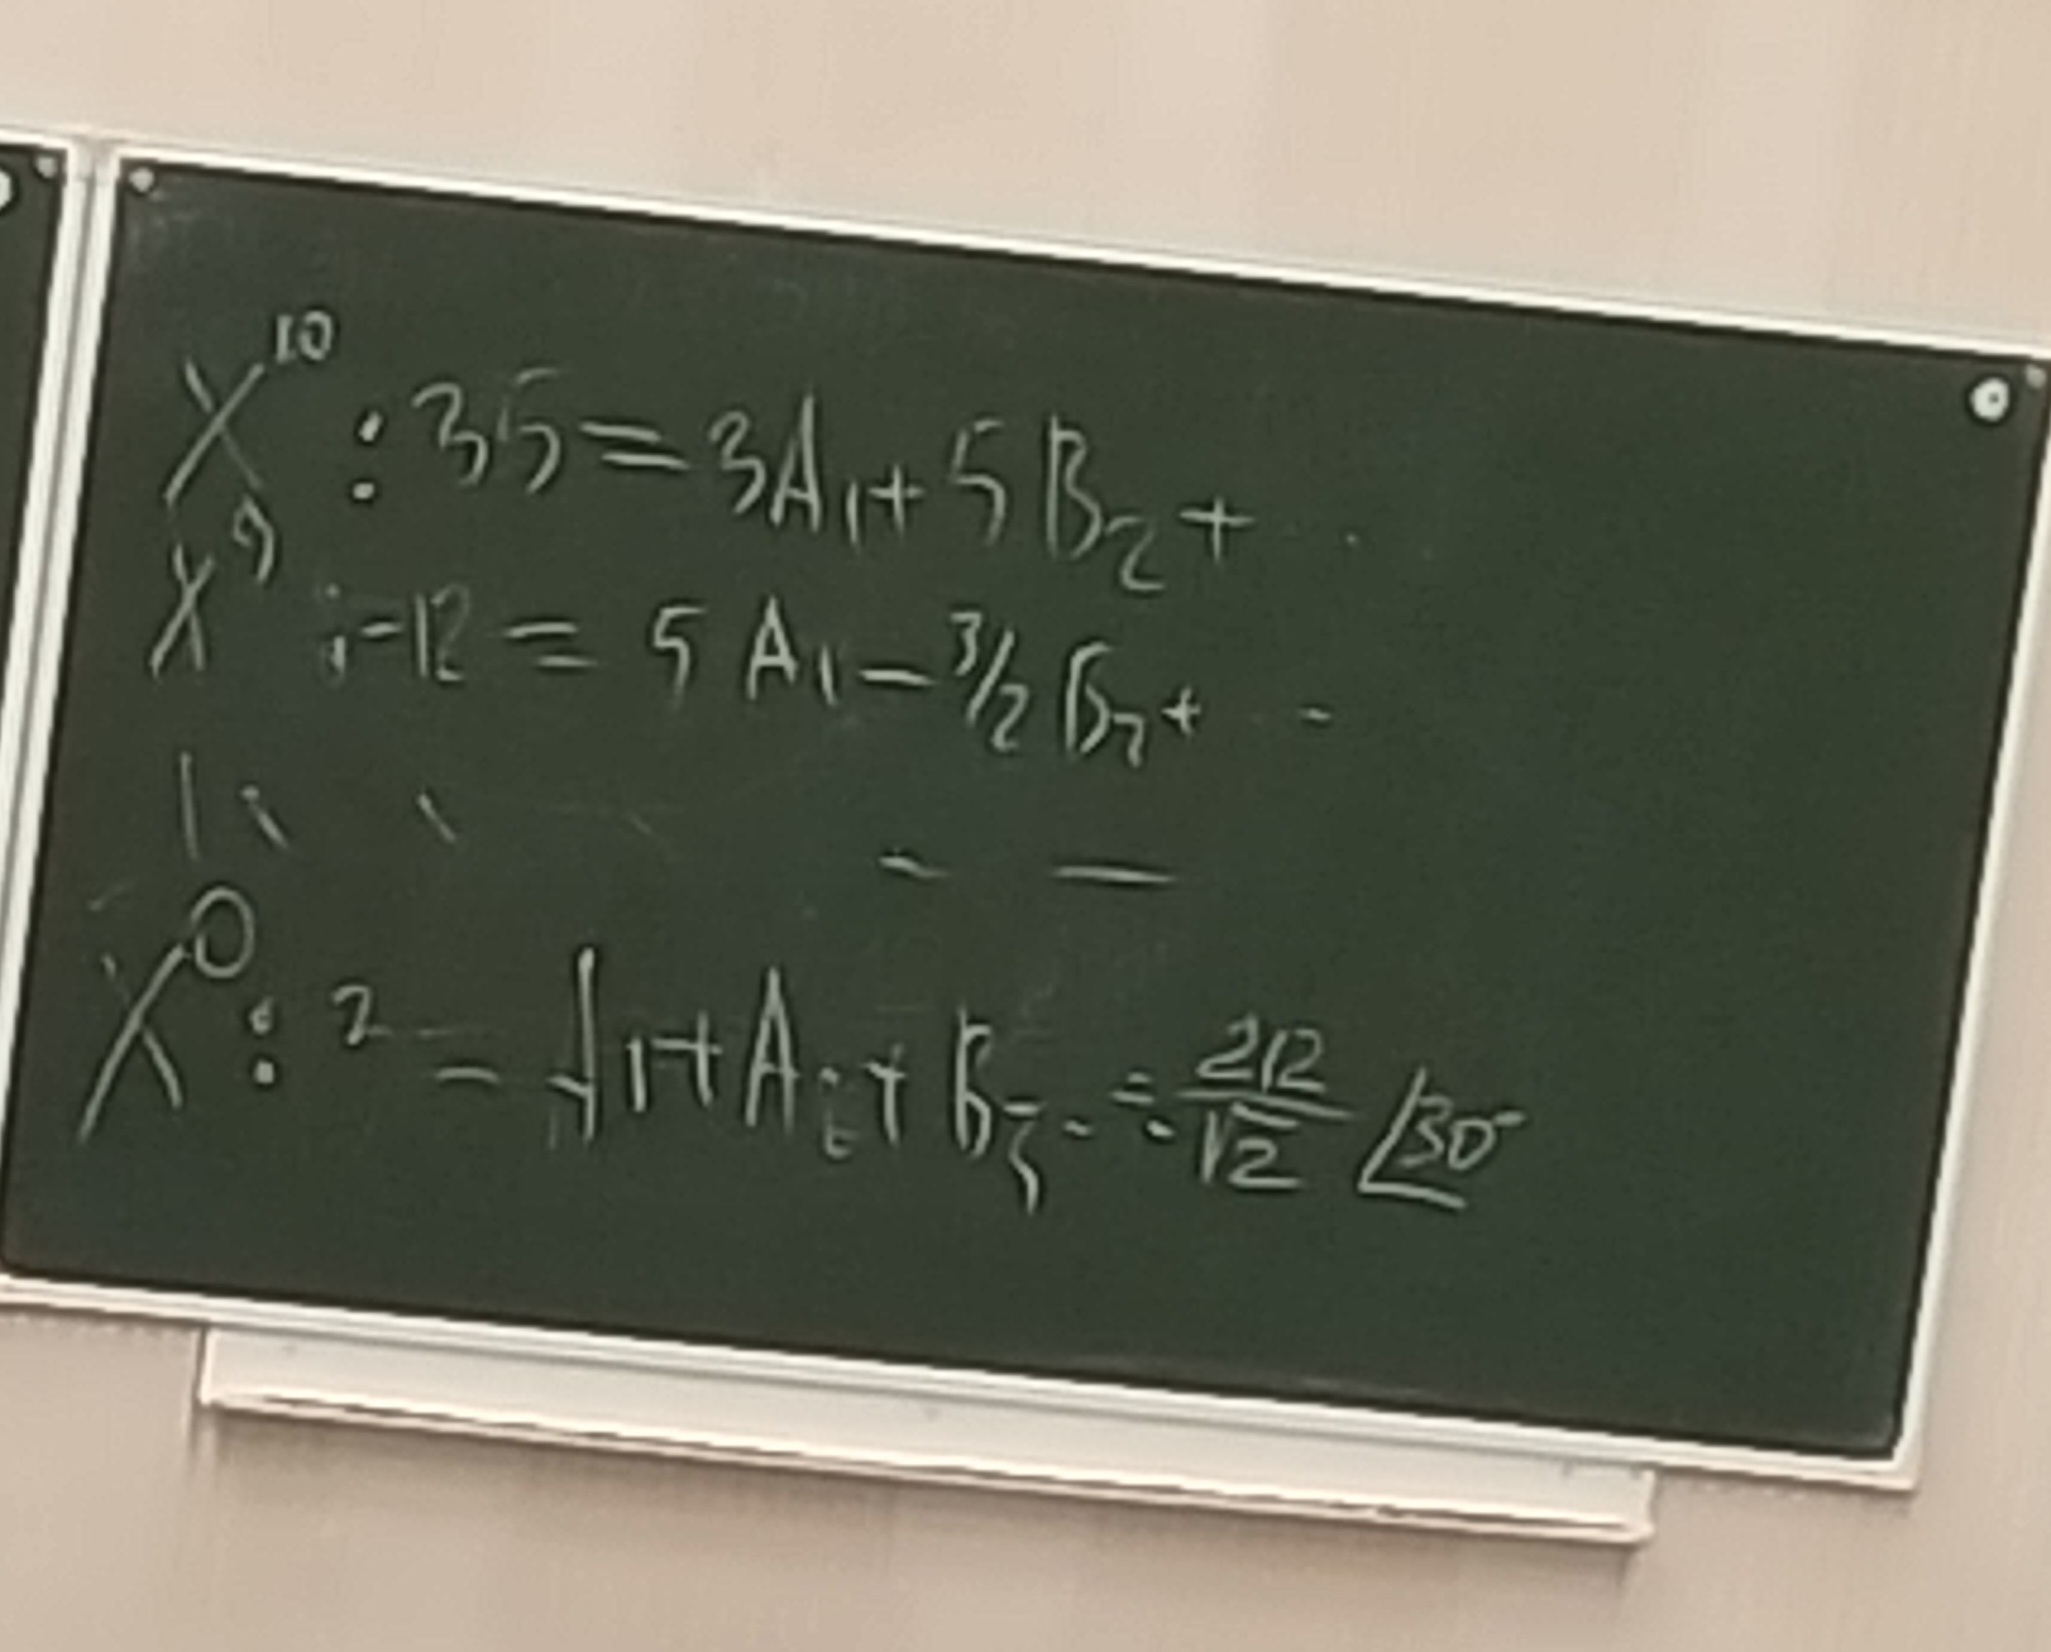 X¹⁰ : 35 = 3A₁ + 5B₂ + ..
X⁹ : -12 = 5A₁ - 3/2 B₂ + -
X⁰ : 2 = A₁ + A₂ + B₃ - = 212/√2 ∠30°